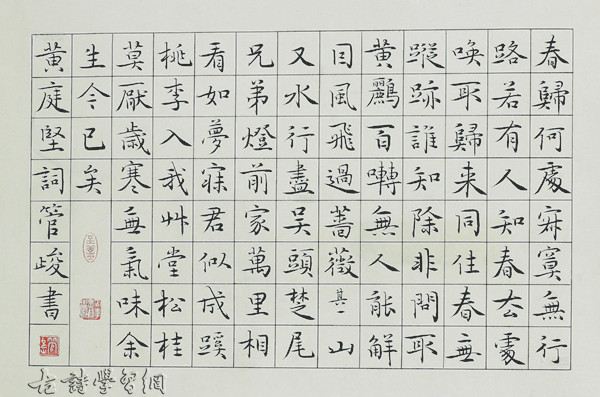 春歸何處寂寞無行
路若有人知春去處
喚取歸來同住春無
蹤跡誰知除非問取
黃鸝百囀無人能解
因風飛過薔薇其一山
又水行盡吳頭楚尾
兄弟燈前家萬里相
看如夢寐君似成蹊
桃李入我艸堂松桂
莫厭歲寒無氣味余
生今已矣
黃庭堅詞管峻書
學習網